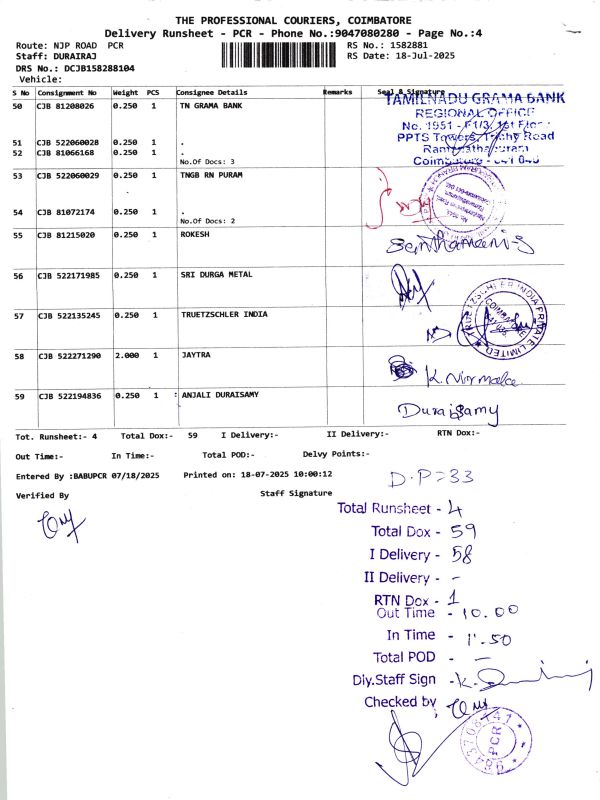 THE PROFESSIONAL COURIERS, COIMBATORE
Delivery Runsheet - PCR - Phone No.:9047080280 - Page No.:4
Route: NJP ROAD PCR RS No.: 1582881
Staff: DURAIRAJ RS Date: 18-Jul-2025
DRS No.: DCJB158288104
Vehicle:
S No Consignment No. Weight PCS Consignee Details Remarks Seal & Signature
50 CJB 81208026 0.250 1 TN GRAMA BANK
TAMILNADU GRAMA BANK
REGIONAL OFFICE
No. 1951 - F1/3, 1st Floor
PPTS Towers, Trichy Road
Coimbatore - 641 045
51 CJB 522060028 0.250 1 .
52 CJB 81066168 0.250 1 .
No.Of Docs: 3
53 CJB 522060029 0.250 1 TNGB RN PURAM
54 CJB 81072174 0.250 1 .
No.Of Docs: 2
55 CJB 81215020 0.250 1 ROKESH
56 CJB 522171985 0.250 1 SRI DURGA METAL
57 CJB 522135245 0.250 1 TRUETZSCHLER INDIA
TRUETZSCHLER INDIA PRIVATE LIMITED
58 CJB 522271290 2.000 1 JAYTRA K. Nirmala
59 CJB 522194836 0.250 1 : ANJALI DURAISAMY Duraisamy
Tot. Runsheet:- 4 Total Dox:- 59 I Delivery:- II Delivery:- RTN Dox:-
Out Time:- In Time:- Total POD:- Delvy Points:-
Entered By :BABUPCR 07/18/2025 Printed on: 18-07-2025 10:00:12
Verified By Staff Signature
D.P=33
Total Runsheet - 4
Total Dox - 59
I Delivery - 58
II Delivery - -
RTN Dox - 1
Out Time - 10.00
In Time - 1.50
Total POD - -
Diy.Staff Sign -
Checked by
PCR